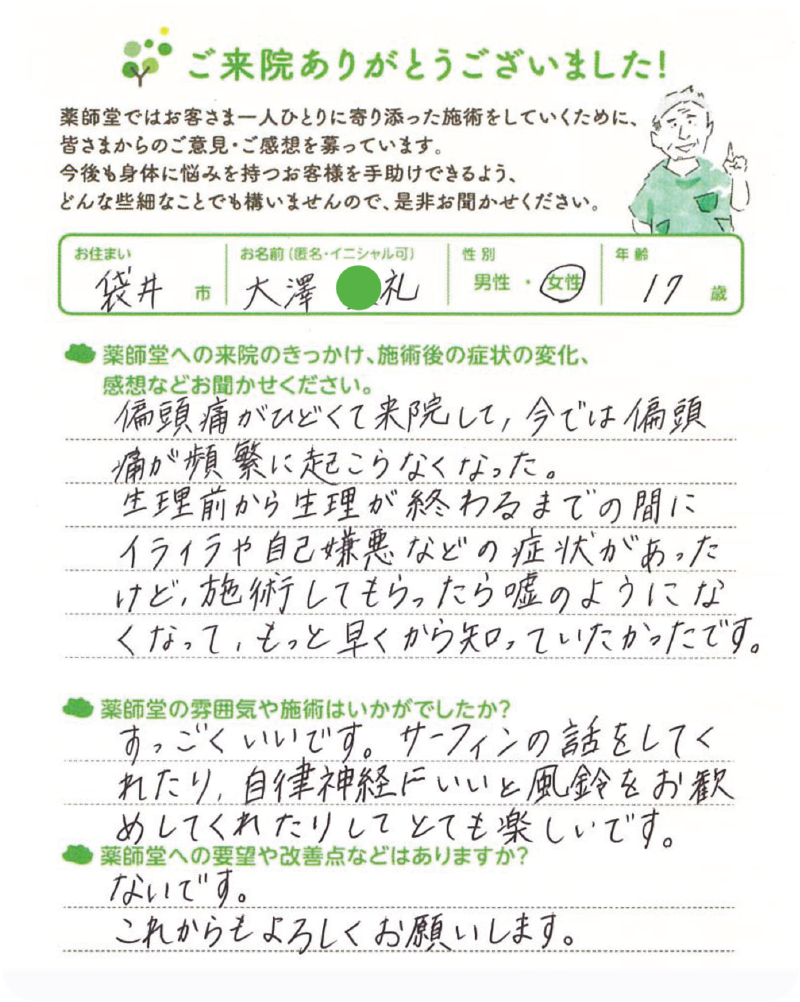 ご来院ありがとうございました!
薬師堂ではお客さま一人ひとりに寄り添った施術をしていくために、
皆さまからのご意見・ご感想を募っています。
今後も身体に悩みを持つお客様を手助けできるよう、
どんな些細なことでも構いませんので、是非お聞かせください。
お住まい お名前(匿名・イニシャル可) 性別 年齢
袋井 市 大澤 礼 男性・女性 17 歳
薬師堂への来院のきっかけ、施術後の症状の変化、
感想などお聞かせください。
偏頭痛がひどくて来院して、今では偏頭
痛が頻繁に起こらなくなった。
生理前から生理が終わるまでの間に
イライラや自己嫌悪などの症状があった
けど、施術してもらったら嘘のようにな
くなって、もっと早くから知っていたかったです。
薬師堂の雰囲気や施術はいかがでしたか?
すっごくいいです。サーフィンの話をしてく
れたり、自律神経にいいと風鈴をお歓
めしてくれたりしてとても楽しいです。
薬師堂への要望や改善点などはありますか?
ないです。
これからもよろしくお願いします。